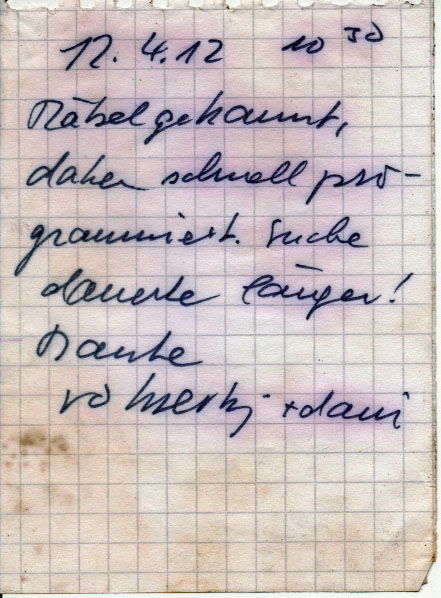 17.4.12 10 30
Rätsel gekannt,
daher schnell pro-
grammiert. Suche
dauerte länger!
Danke
+ dani